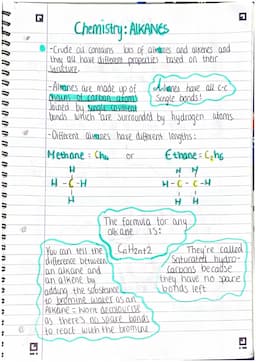 Chemistry: ALKANES
- Crude oil contains lots of alkanes and alkenes and
they all have different properties based on their
structure.
- Alkanes are made up of
chains of carbon atoms
joined by single covalent
bonds which are surrounded by hydrogen atoms.
Alkanes have all C-C
single bonds!
- Different alkanes have different lengths:
Methane = CH4 or Ethane = C2H6
H
H - C - H
H
H H
H - C - C - H
H H
The formula for any
alkane is:
CnH2n+2
You can tell the
difference between
an alkane and
an alkene by
adding the substance
to bromine water as an
Alkane won't decolourise
as there's no spare bonds
to react with the bromine
They're called
saturated hydro-
carbons because
they have no spare
bonds left